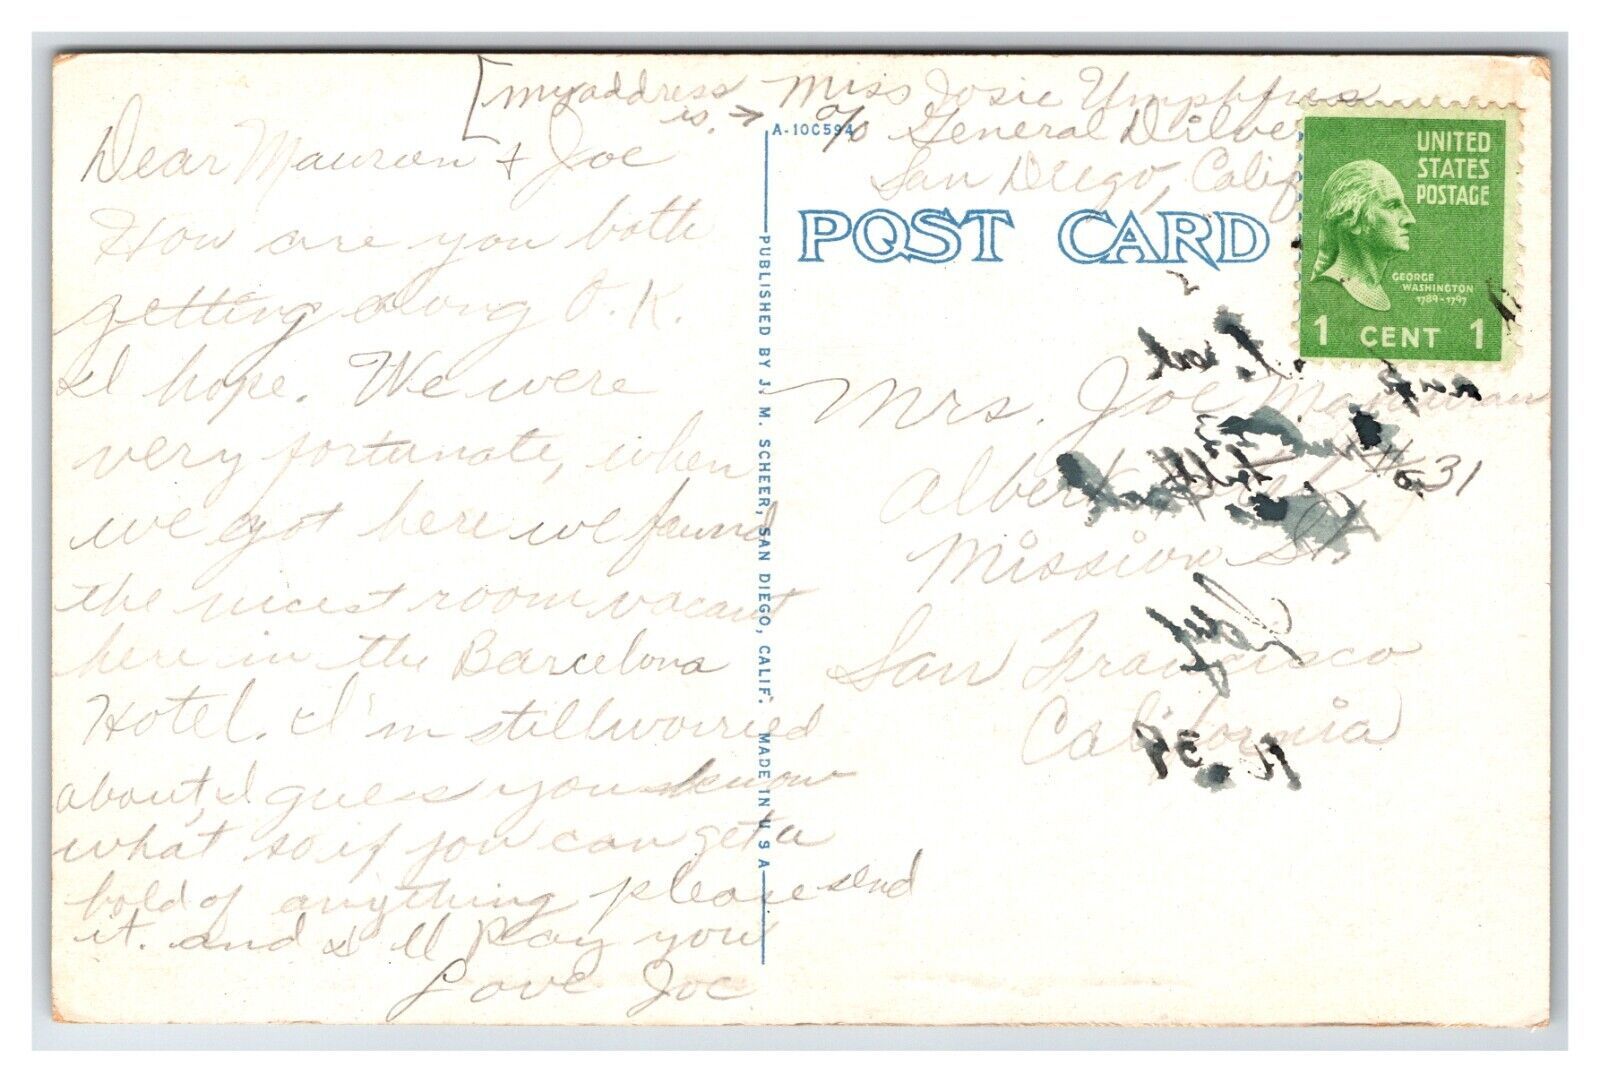 [my address Miss Josie Umphfres
is. → c/o General Dilve
San Diego, Calif
A-10C594
Dear Maurien + Joe
How are you both
getting along O.K.
I hope. We were
very fortunate, when
we got here we found
the nicest room vacant
here in the Barcelona
Hotel. I'm still worried
about, I guess you know
what so if you can get a
hold of anything please send
it. and I'll pay you
Love Joe
PUBLISHED BY J. M. SCHEER, SAN DIEGO, CALIF. MADE IN U S A
POST CARD
UNITED
STATES
POSTAGE
GEORGE
WASHINGTON
1789-1797
1 CENT 1
Mrs. Joe
Albert Hotel #631
Mission St.
San Francisco
California